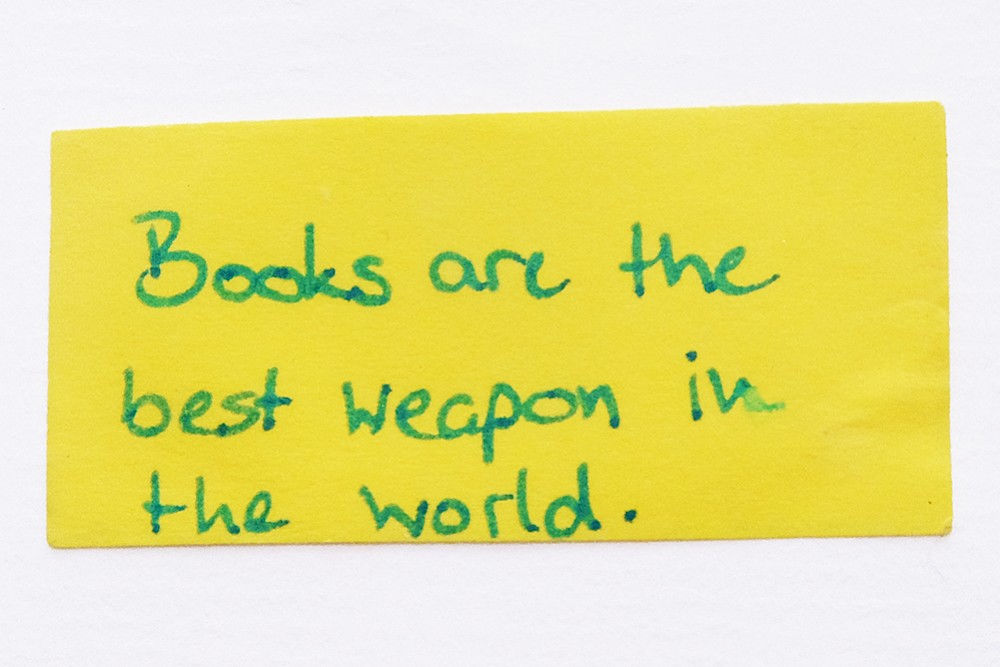 Books are the
best weapon in
the world.